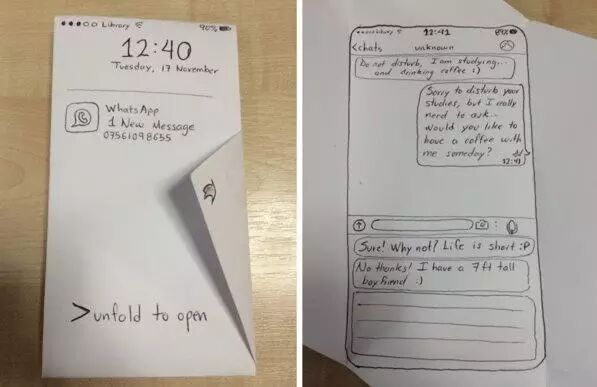 Library 90%
12:40
Tuesday, 17 November
WhatsApp
1 New Message
07561098655
>unfold to open
Library 12:41 89%
<chats unknown
Do not disturb, I am studying...
and drinking coffee :)
Sorry to disturb your
studies, but I really
need to ask...
would you like to
have a coffee with
me someday?
12:41
Sure! Why not? Life is short :P
No thanks! I have a 7ft tall
boyfriend :)